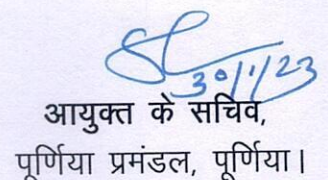 30/1/23
आयुक्त के सचिव,
पूर्णिया प्रमंडल, पूर्णिया।